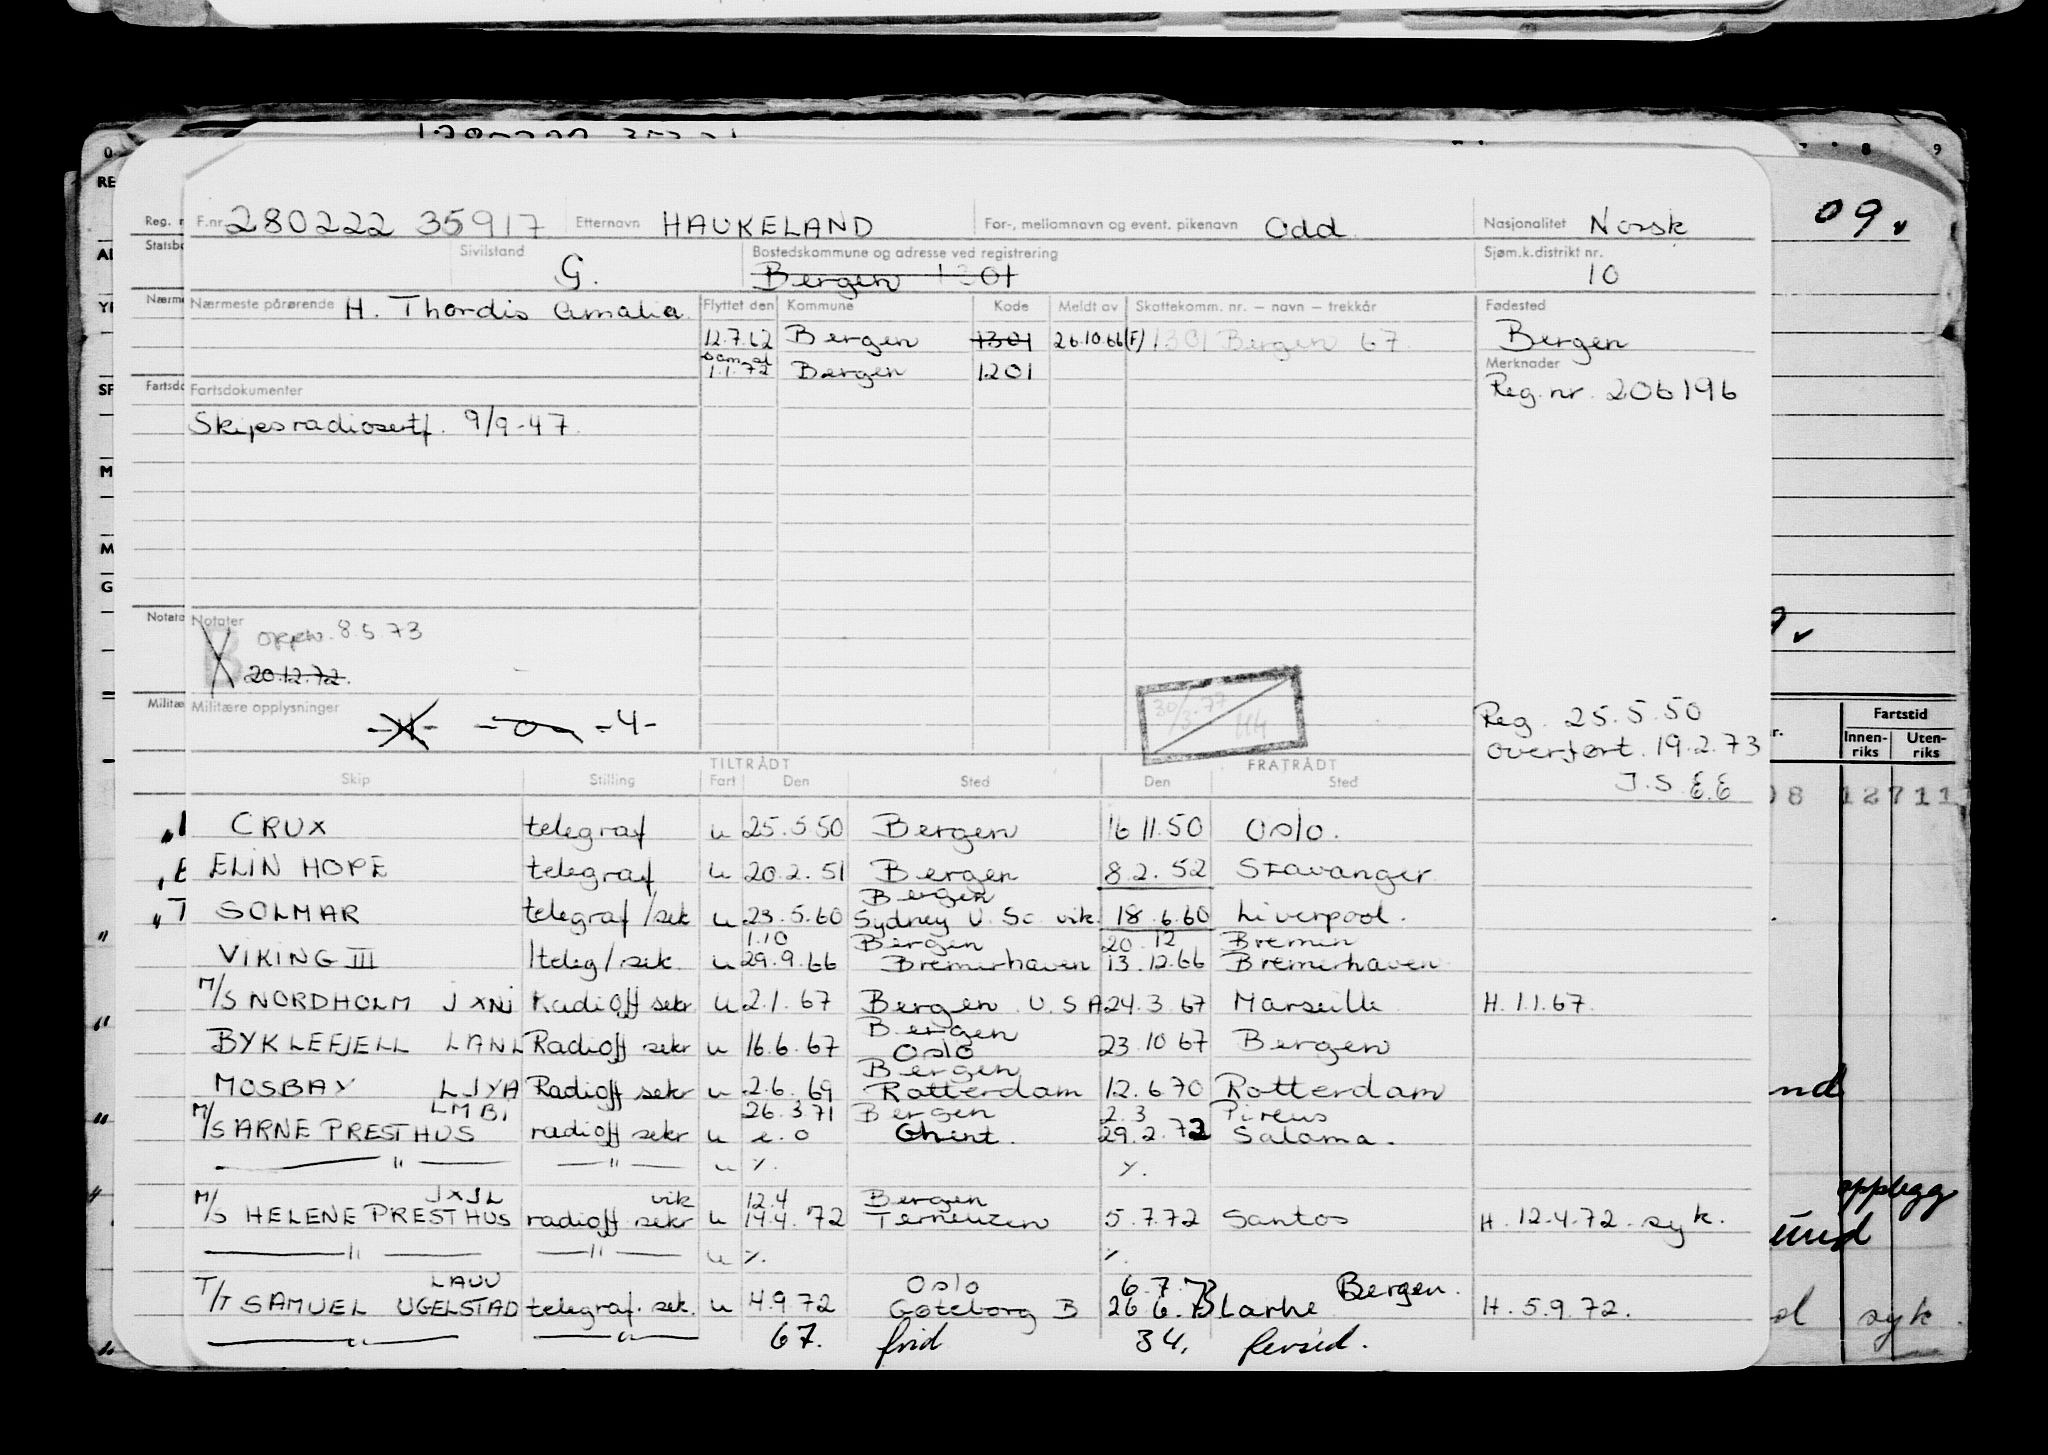 F.nr. 280222 35917 Etternavn HAUKELAND For-, mellomnavn og event. pikenavn Odd Nasjonalitet Norsk
Sivilstand G. Bostedskommune og adresse ved registrering Bergen 1301 Sjøm.k.distrikt nr. 10
Nærmeste pårørende H. Thordis Amalia Flyttet den Kommune Kode Meldt av Skattekomm. nr. — navn — trekkår Fødested
12.7.62 Bergen 1301 26.10.66 (F) 1301 Bergen 67 Bergen
1.1.72 Bergen 1201 Merknader
Fartsdokumenter Reg. nr. 206196
Skipsradiosertf. 9/9-47
Notater
8.5.73
B
20.12.72.
Militære opplysninger -4-
30/3.77
Reg. 25.5.50
overført. 19.2.73
J.S. E.E
TILTRÅDT FRATRÅDT
Skip Stilling Fart Den Sted Den Sted
CRUX telegraf u 25.5.50 Bergen 16.11.50 Oslo.
ELIN HOPE telegraf u 20.2.51 Bergen 8.2.52 Stavanger
Bergen
SOLMAR telegraf/sek u 23.5.60 Sydney U.Sc. vik. 18.6.60 Liverpool.
1.10 Bergen 20.12 Bremen
VIKING III 1teleg/sek u 29.9.66 Bremerhaven 13.12.66 Bremerhaven
M/S NORDHOLM JXNJ Radioff sekr u 2.1.67 Bergen U.S.A 24.3.67 Marseille H. 1.1.67.
Bergen
BYKLEFJELL LANL Radioff sekr u 16.6.67 Oslo 23.10.67 Bergen
Bergen
MOSBAY LJYA Radioff sekr u 2.6.69 Rotterdam 12.6.70 Rotterdam
LMBI 26.3.71 Bergen 2.3 Pireus
M/S ARNE PRESTHUS radioff sekr u e.o Ghent. 29.2.72 Salama.
— " — — " — u %. %.
JXJL vik 12.4 Bergen
M/S HELENE PRESTHUS radioff sekr u 14.4.72 Terneuzen 5.7.72 Santos H. 12.4.72. syk.
— " — — " — u %. %.
LAUU Oslo 6.7.73 Bergen.
T/T SAMUEL UGELSTAD telegraf. sek. u 4.9.72 Gøteborg B 26.6.73 H. 5.9.72.
— " — — " — 67. frid 34.
Reg. n
Statsbo
Nærme
Fartsdo
Notate
Militæ
09.
Fartstid
Innen-riks Uten-riks
12711
opplegg
syk.